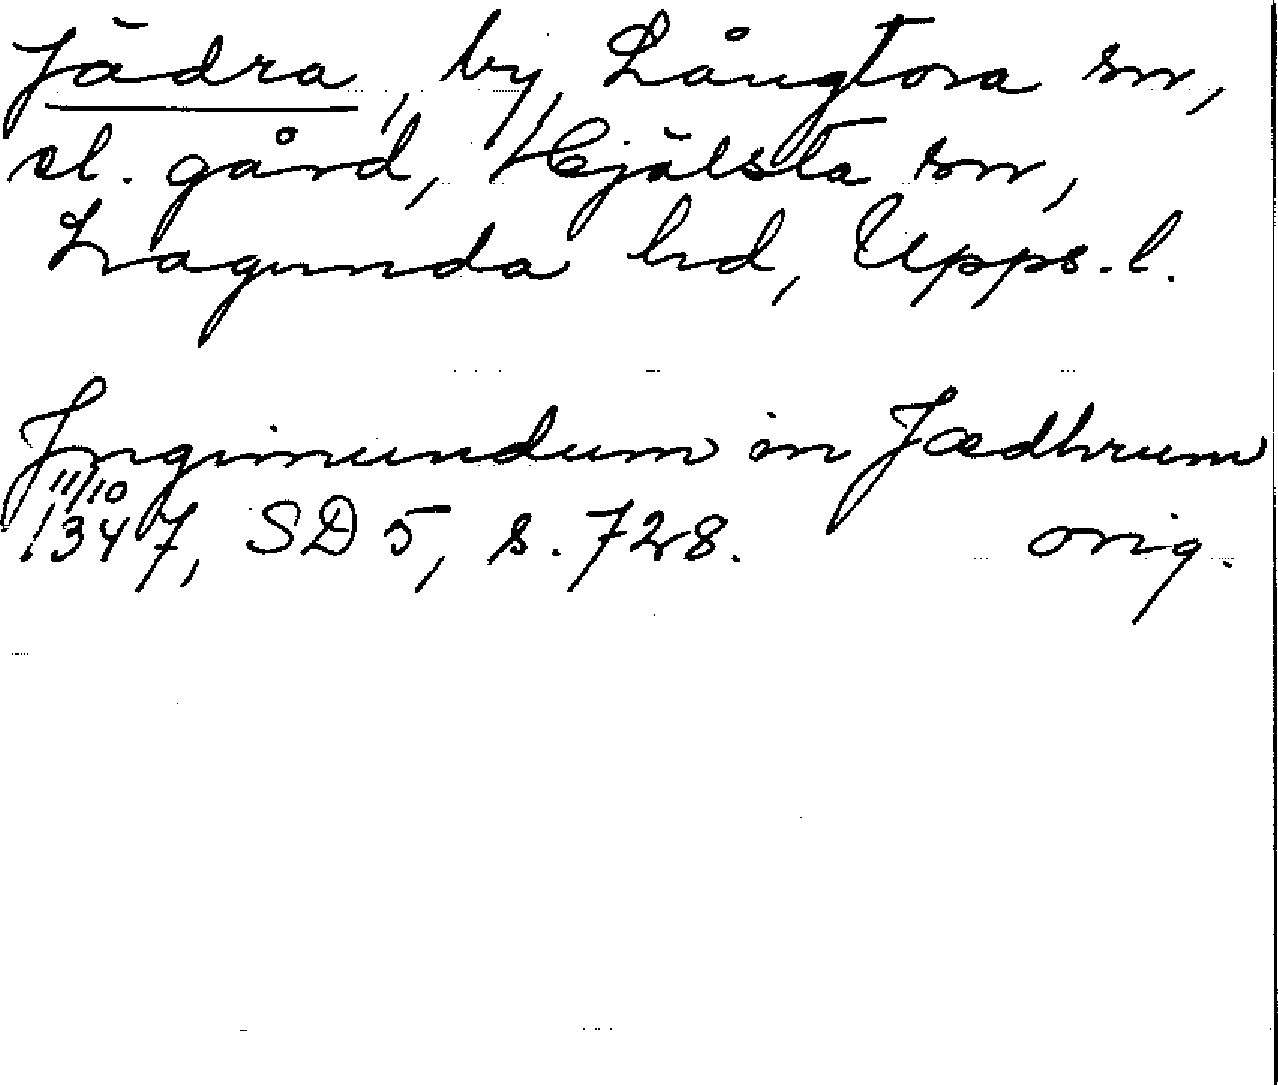 Jädra, by, Långtora sn,
el. gård, Hjälsta sn,
Lagunda hd, Upps. l.
Jngimundum in Jædhrum
11/10
1347, SD 5, s. 728. orig.